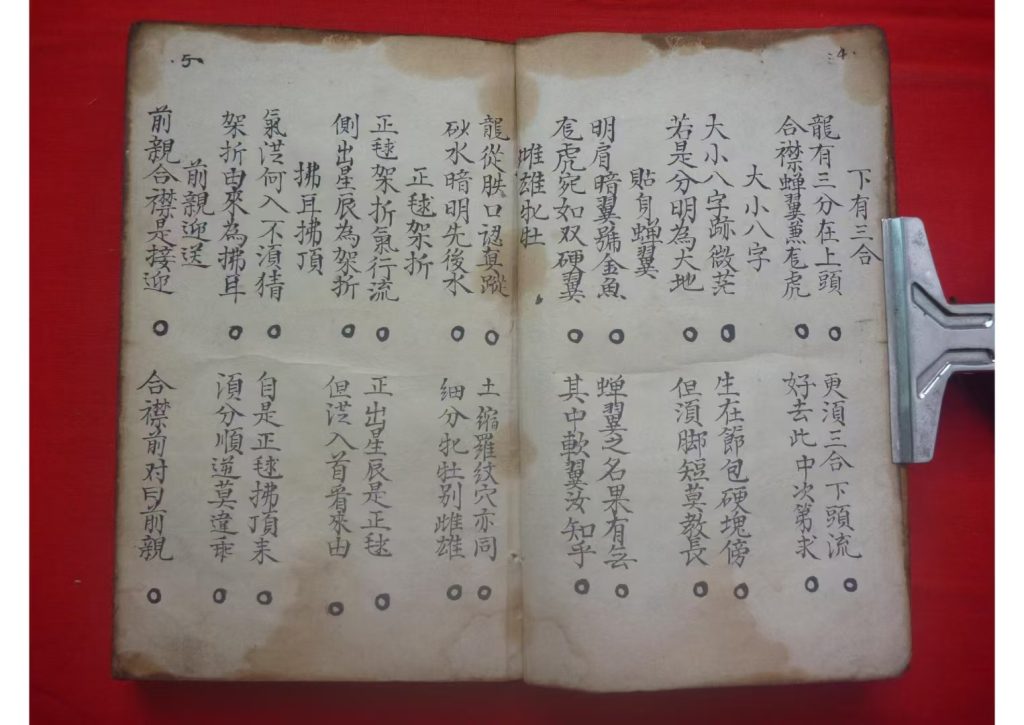 4
下有三合
龍有三分在上頭 更須三合下頭流
合襟蟬翼兼尨虎 好去此中次第求
大小八字
大小八字跡微茫 生在節包硬塊傍
若是分明為大地 但須脚短莫教長
貼身蟬翼
明肩暗翼號金魚 蟬翼之名果有
尨虎宛如双硬翼 其中軟翼汝知乎
雌雄牝牡
龍從口認真蹤 土縮羅紋穴亦同
砂水暗明先後水 細分牝牡别雌雄
5
正毬架折
正毬架折氣行流 正出星辰是正毬
側出星辰為架折 但泬入首看來由
拂耳拂頂
氣泬何入不須猜 自是正毬拂頂来
架折由來為拂耳 須分順逆莫違乖
前親迎送
前親合襟是接迎 合襟前对曰前親